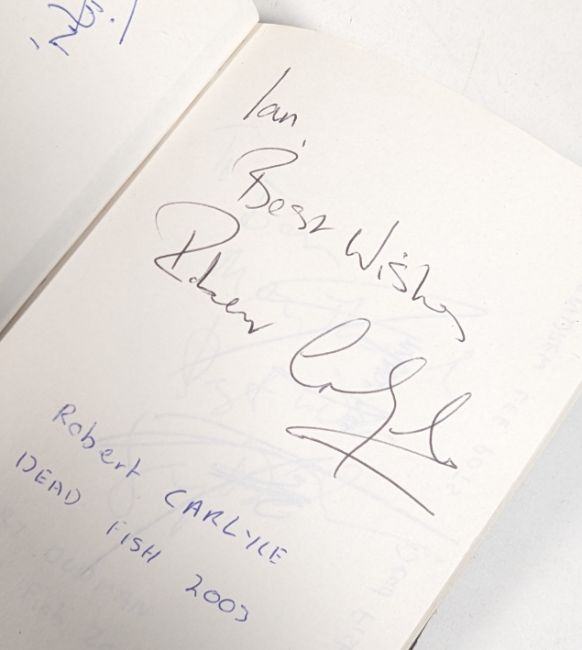 Ian,
Best Wishes
Robert Carlyle
Robert CARLYLE
DEAD FISH 2003